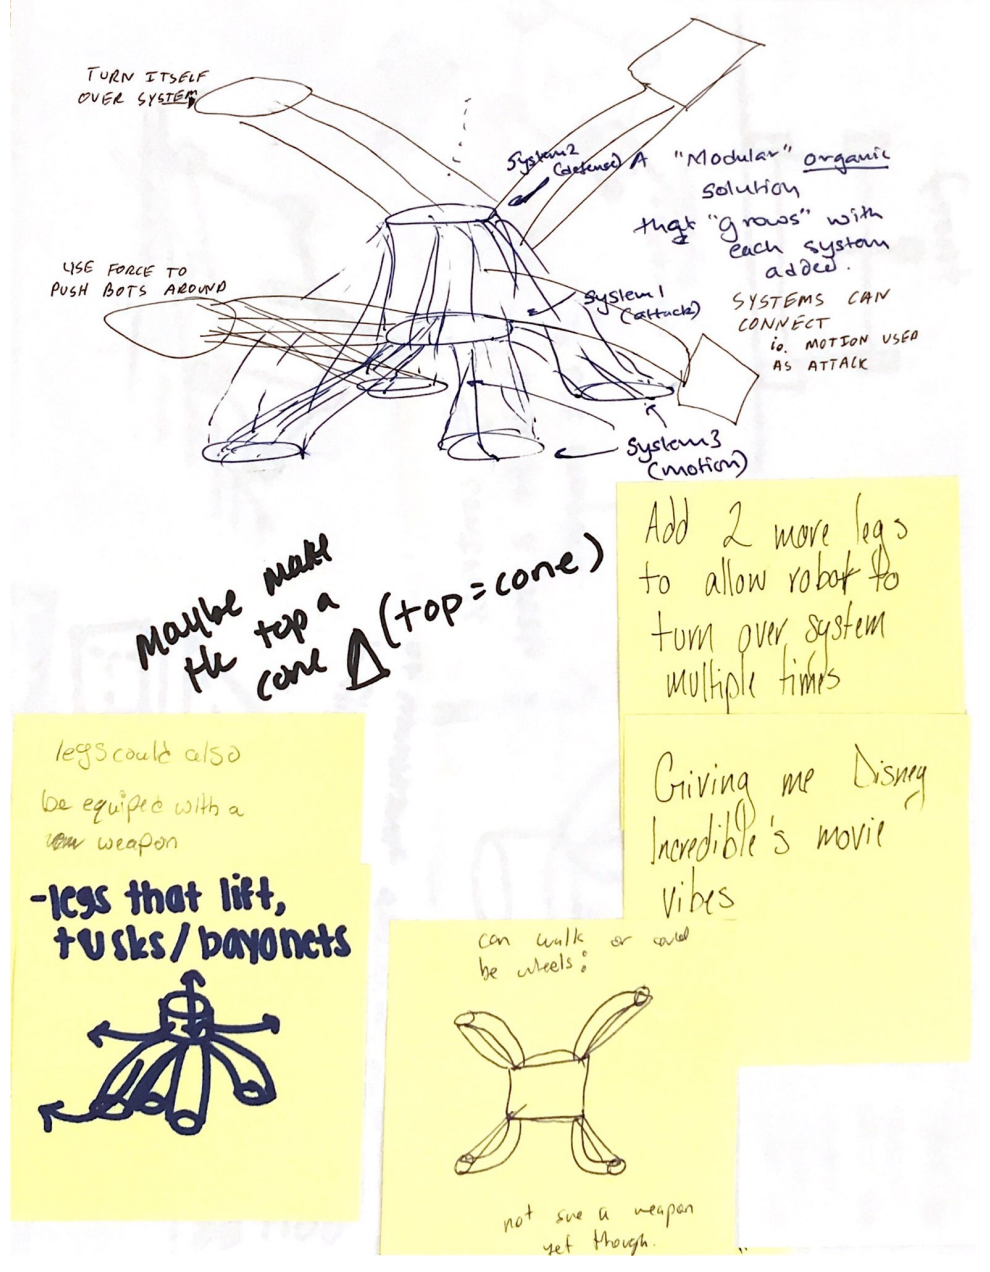 TURN ITSELF
OVER SYSTEM
System2
(defense)
A "Modular" organic
solution
that "grows" with
each system
added.
USE FORCE TO
PUSH BOTS AROUND
System1
(attack)
SYSTEMS CAN
CONNECT
ie. MOTION USED
AS ATTACK
System3
(motion)
Maybe make
the top a
cone Δ (top=cone)
Add 2 more legs
to allow robot to
turn over system
multiple times
legs could also
be equiped with a
weapon
-legs that lift,
tusks/bayonets
Giving me Disney
Incredible's movie
vibes
can walk or could
be wheels:
not sure a weapon
yet though.